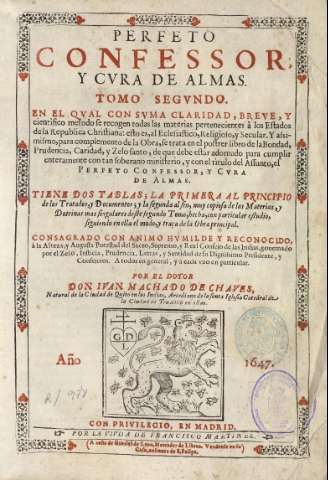 PERFETO
CONFESSOR,
Y CVRA DE ALMAS.
TOMO SEGVNDO.
EN EL QVAL CON SVMA CLARIDAD, BREVE, Y
cientifico metodo se recogen todas las materias pertenecientes à los Estados
de la Republica Christiana: esto es, al Eclesiastico, Religioso, y Secular. Y assi-
mismo, para complemento de la Obra, se trata en el postrer libro de la Bondad,
Prudencia, Caridad, y Zelo santo, de que debe estar adornado para cumplir
enteramente con tan soberano ministerio, y con el titulo del Assunto, el
PERFETO CONFESSOR, Y CVRA
DE ALMAS.
TIENE DOS TABLAS; LA PRIMERA AL PRINCIPIO
de los Tratados, y Documentos; y la segunda al fin, muy copiosa de las Materias, y
Dotrinas mas singulares deste segundo Tomo, hecha con particular estudio,
siguiendo en ella el modo, y traça de la Obra principal.
CONSAGRADO CON ANIMO HVMILDE Y RECONOCIDO,
à la Alteza, y Augusta Potestad del Sacro, Supremo, y Real Consejo de las Indias, governado
por el Zelo, Justicia, Prudencia, Letras, y Santidad de su Dignissimo Presidente, y
Consejeros. A todos en general, y à cada vno en particular.
POR EL DOTOR
DON IVAN MACHADO DE CHAVES,
Natural de la Ciudad de Quito en las Indias, Arcediano de la santa Iglesia Catedral de
la Ciudad de Truxillo en ellas.
Año
1647.
CON PRIVILEGIO, EN MADRID.
POR LA VIVDA DE FRANCISCO MARTINEZ.